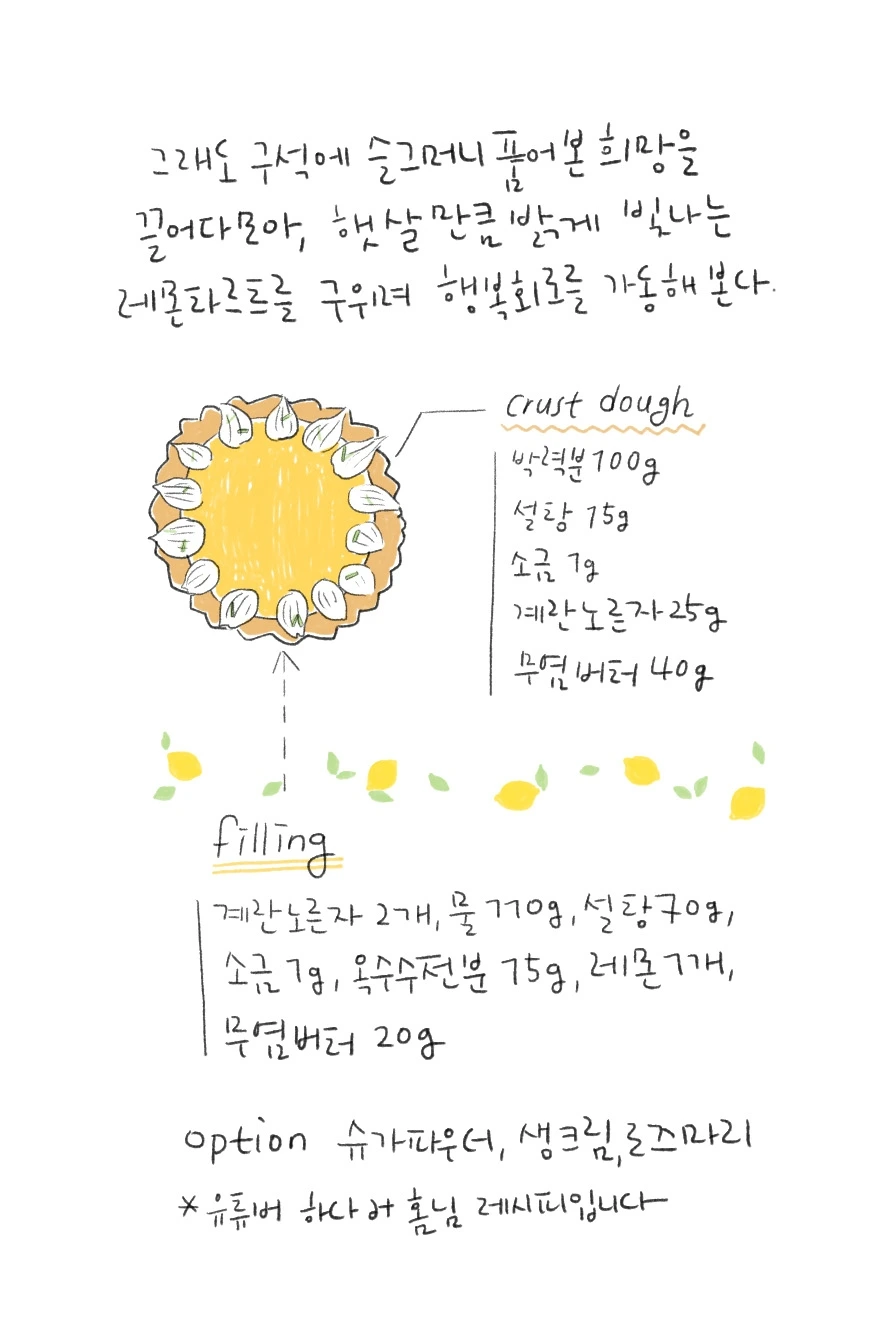 그래도 구석에 슬그머니 품어본 희망을
끌어다모아, 햇살만큼 밝게 빛나는
레몬타르트를 구우며 행복회로를 가동해본다.
crust dough
박력분 100g
설탕 15g
소금 1g
계란노른자 25g
무염버터 40g
filling
계란노른자 2개, 물 110g, 설탕 70g,
소금 1g, 옥수수전분 15g, 레몬 1개,
무염버터 20g
option 슈가파우더, 생크림, 로즈마리
*유튜버 하다 홈님 레시피입니다